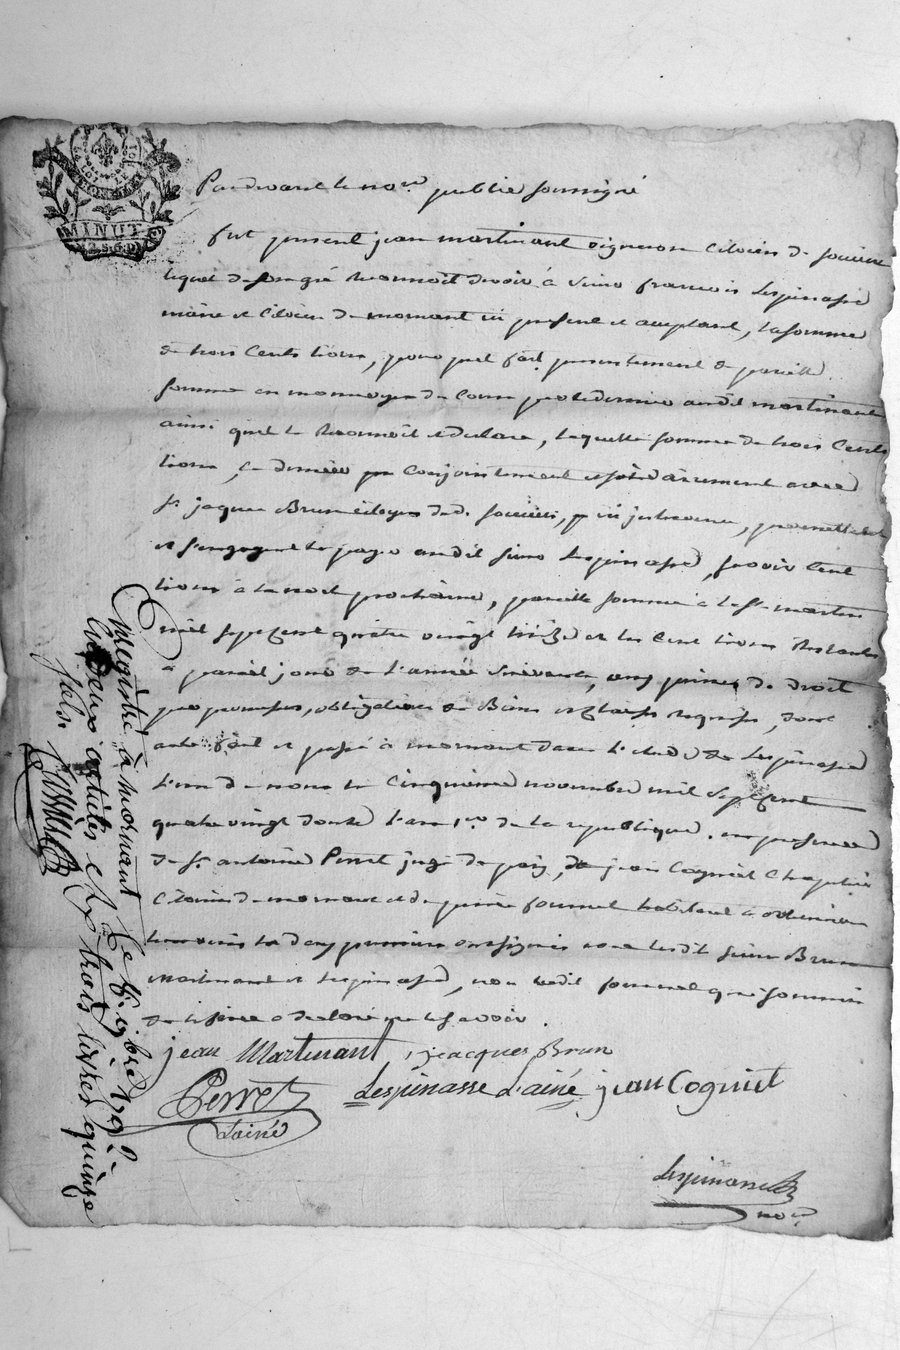 MINUTE
2.s.6.d
Pardevant le no.re public soussigné
fut present jean martinant vigneron citoien de
lequel de son gré reconnoit devoir à sieur françois Lespinasse
maire et citoien de mornant ici present et acceptant, la somme
de trois cents livres, pour pret fait presentement de pareille
somme en monnoye de cours par le dernier audit martinant
ainsi qu'il le reconnoit et declare, laquelle somme de trois cents
livres, ce dernier conjointement et solidairement avec
sr. jaques Brun citoyen dud. ici intervenu, promettent
et s'engagent de payer audit sieur Lespinasse, savoir cent
livres à la noel prochaine, pareille somme à la st. martin
mil sept cent quatre vingt treize et les cent livres restants
à pareil jour de l'année suivante, aux peines de droit
par promesses, obligations de Biens et clauses requises, dont
acte fait et passé à mornant dans l'étude de Lespinasse
l'un de nous le cinquieme novembre mil sept cent
quatre vingt douze l'an 1.er de la republique. en presence
de sr. antoine Perret juge de paix, de jean Cogniet chapelier
citoiens de mornant et de pierre fournel habitant à
temoins les deux premiers ont signés avec lesdits sieur Brun
Martinant et Lespinasse, non ledit fournel qui sommé
de le faire a declaré ne le savoir.
jean Martinant jacques Brun
Perret Lespinasse l'ainé jean Cogniet
L'ainé
Lespinasse
no.re
Enregistré à mornant le 8. 9bre 1792.
les deux articles et Rx trois livres quinze
sols